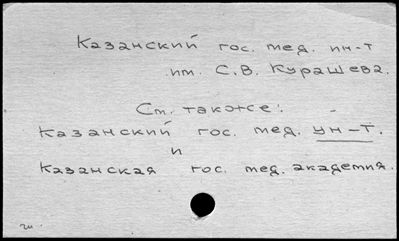 Казанский гос. мед. ин-т
им. С.В. Курашева.
См. также:
Казанский гос. мед. ун-т.
и
Казанская гос. мед. академия.